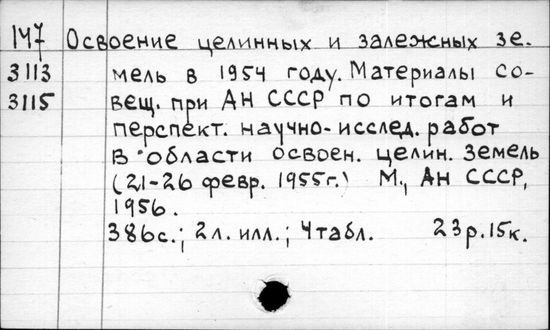 147 Освоение целинных и залежных зе-
3113 мель в 1954 году. Материалы со-
3115 вещ. при АН СССР по итогам и
перспект. научно-исслед. работ
в области освоен. целин. земель
(21-26 февр. 1955г.) М., АН СССР,
1956.
386с.; 2л. илл.; 4 табл. 23р.15к.